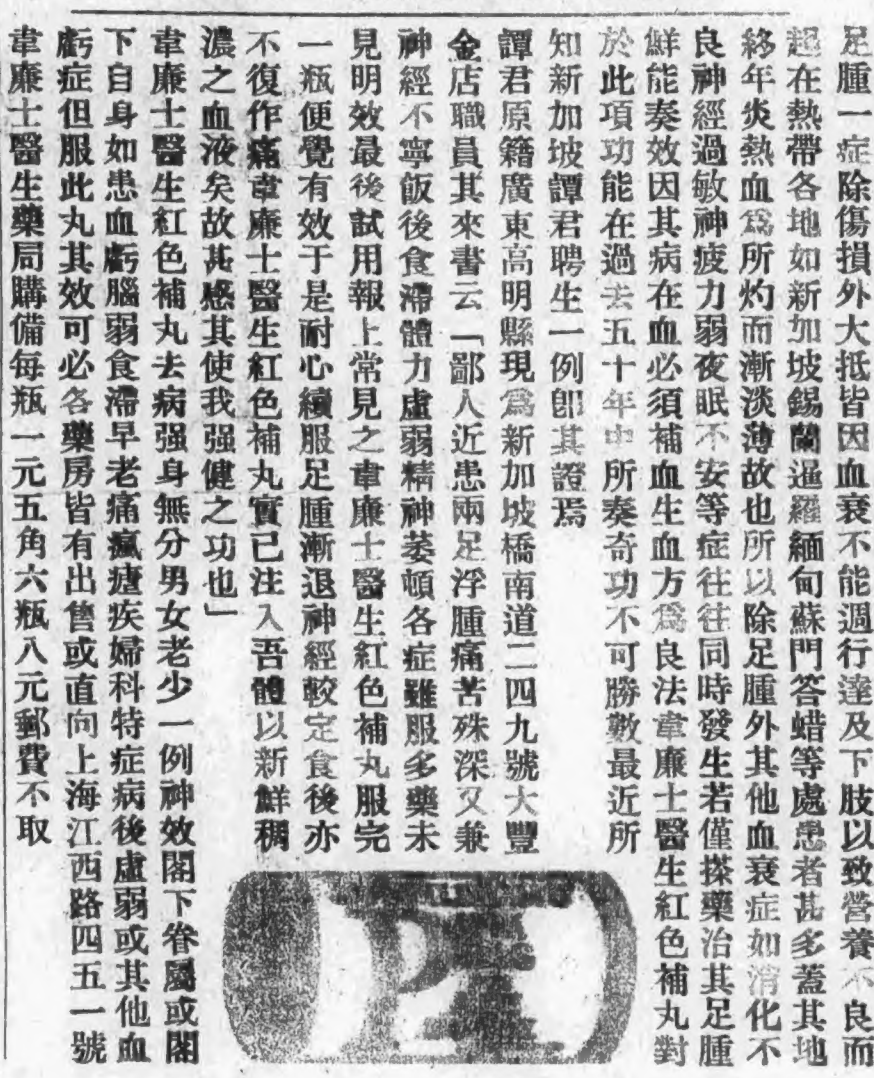 足腫一症除傷損外大抵皆因血衰不能週行達及下肢以致營養不良而
起在熱帶各地如新加坡錫蘭暹羅緬甸蘇門答蜡等處患者甚多蓋其地
終年炎熱血爲所灼而漸淡薄故也所以除足腫外其他血衰症如消化不
良神經過敏神疲力弱夜眠不安等症往往同時發生若僅搽藥治其足腫
鮮能奏效因其病在血必須補血生血方爲良法韋廉士醫生紅色補丸對
於此項功能在過去五十年中所奏奇功不可勝數最近所
知新加坡譚君聘生一例卽其證焉
譚君原籍廣東高明縣現爲新加坡橋南道二四九號大豐
金店職員其來書云「鄙人近患兩足浮腫痛苦殊深又兼
神經不寧飯後食滯體力虛弱精神萎頓各症雖服多藥未
見明效最後試用報上常見之韋廉士醫生紅色補丸服完
一瓶便覺有效于是耐心續服足腫漸退神經較定食後亦
不復作痛韋廉士醫生紅色補丸實已注入吾體以新鮮稠
濃之血液矣故甚感其使我强健之功也」
韋廉士醫生紅色補丸去病强身無分男女老少一例神效閣下眷屬或閣
下自身如患血虧腦弱食滯早老痛瘋瘧疾婦科特症病後虛弱或其他血
虧症但服此丸其效可必各藥房皆有出售或直向上海江西路四五一號
韋廉士醫生藥局購備每瓶一元五角六瓶八元郵費不取